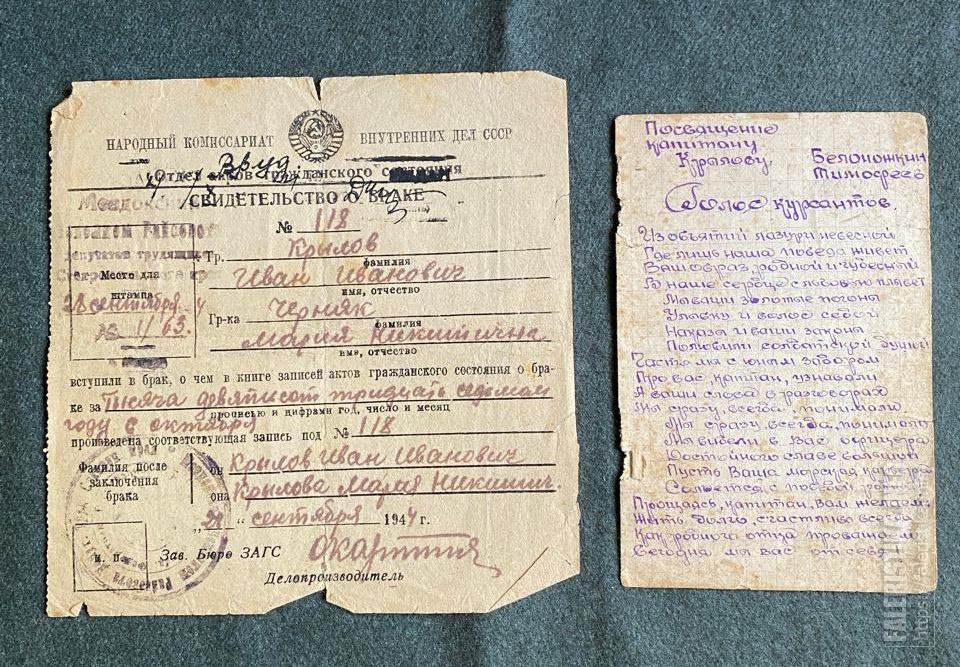 НАРОДНЫЙ КОМИССАРИАТ ВНУТРЕННИХ ДЕЛ СССР
Отдел актов гражданского состояния
СВИДЕТЕЛЬСТВО О БРАКЕ
№ 118
Гр. Крылов
фамилия
Иван Иванович
имя, отчество
Место для
штампа
28 сентября
Гр-ка Черняк
фамилия
Мария Никитична
имя, отчество
вступили в брак, о чем в книге записей актов гражданского состояния о бра-
ке за Тысяча девятисот тридцать седьмом
прописью и цифрами год, число и месяц
году 6 октября
произведена соответствующая запись под № 118
Фамилия после
заключения
брака
он Крылов Иван Иванович
она Крылова Мария Никитич.
" сентября 1944 г.
М. П.
Зав. Бюро ЗАГС
Делопроизводитель
Посвящение
капитану
Крылову.
Белоножкин
Тимофеев
Голос курсантов.
Из объятий лазури небесной
Где лишь наша победа живет
Ваш образ, родной и чудесный
В наше сердце с любовью плывет
Мы ваши золотые погоны
Улыбку и голос седой
Наказы и ваши законы
Полюбили солдатской душой
Часто мы с юным задором
Про вас, капитан, узнавали
А ваши слова в разговорах
Мы сразу, всегда, понимали
Мы сразу, всегда, понимали
Мы видели в Вас офицера
Достойного славе большой
Пусть Ваша морская карьера
Сольется с победой
Прощаясь, капитан, Вам желаем:
Жить долго, счастливо всегда
Как родного отца провожаем
Сегодня мы вас от себя
FALERISTIKA
https://